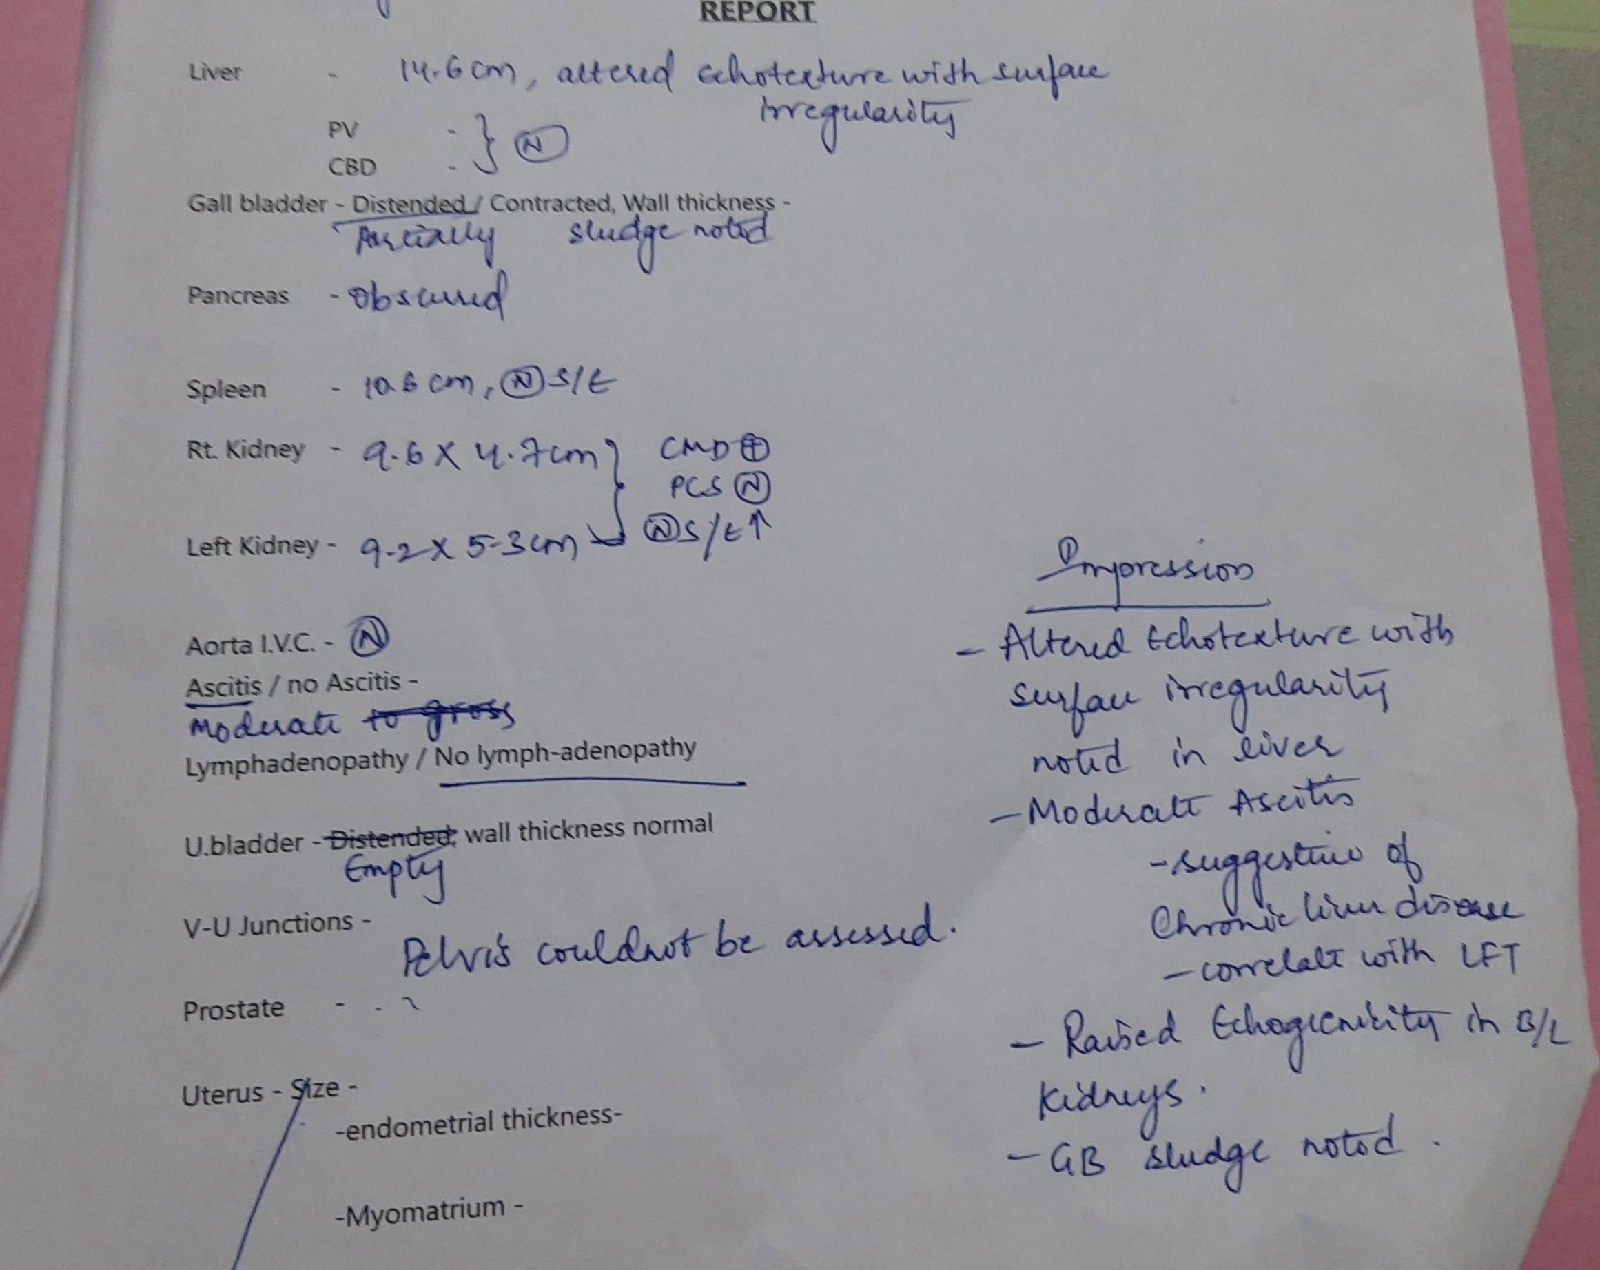 REPORT
Liver - 14.6 cm, altered echotexture with surface
irregularity
PV - } N
CBD -
Gall bladder - Distended / Contracted, Wall thickness -
Partially sludge noted
Pancreas - Obscured
Spleen - 10.6 cm, N S/E
Rt. Kidney - 9.6 X 4.7cm } CMD +
PCS N
Left Kidney - 9.2 X 5.3cm N S/E ↑
Aorta I.V.C. - N
Ascitis / no Ascitis -
Moderate to gross
Lymphadenopathy / No lymph-adenopathy
U.bladder - Distended, wall thickness normal
Empty
V-U Junctions -
Pelvis couldnot be assessed.
Prostate -
Uterus - Size -
-endometrial thickness-
-Myomatrium -
Impression
- Altered Echotexture with
surface irregularity
noted in liver
- Moderate Ascitis
- suggestive of
Chronic liver disease
- correlate with LFT
- Raised Echogenicity in B/L
kidneys.
- GB sludge noted.